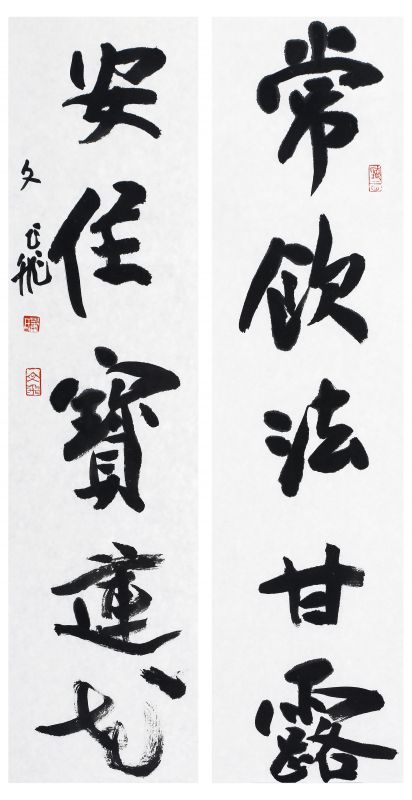 常飲法甘露
安住寶蓮花
文